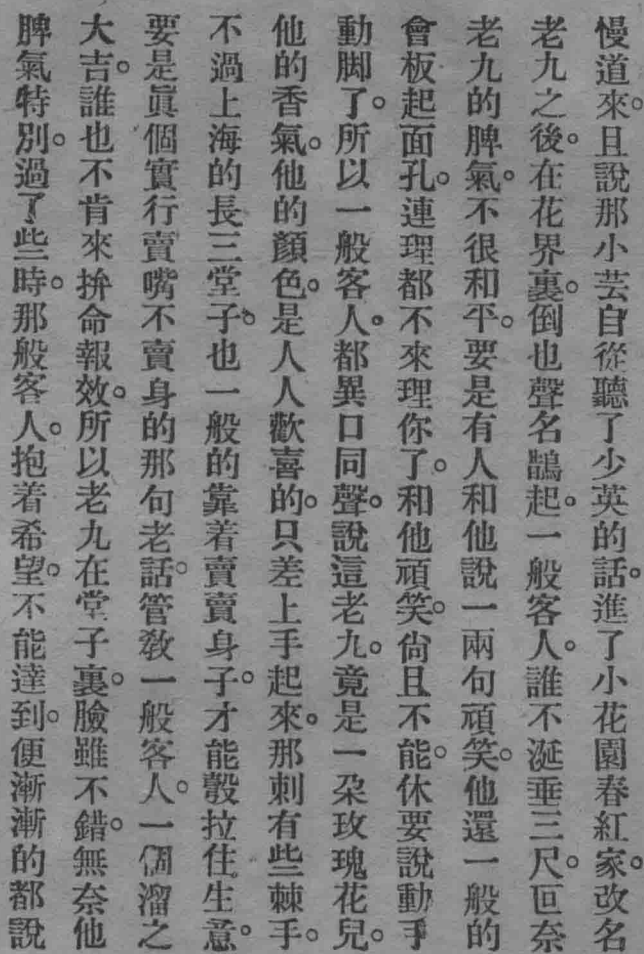 慢道來。且說那小芸自從聽了少英的話。進了小花園春紅家。改名
老九之後。在花界裏。倒也聲名鵲起。一般客人。誰不涎垂三尺。叵奈
老九的脾氣。不很和平。要是有人和他說一兩句頑笑。他還一般的
會板起面孔。連理都不來理你了。和他頑笑。尙且不能。休要說動手
動脚了。所以一般客人。都異口同聲。說這老九。竟是一朶玫瑰花兒。
他的香氣。他的顏色。是人人歡喜的。只差上手起來。那刺有些棘手。
不過上海的長三堂子。也一般的靠着賣賣身子。才能彀拉住生意。
要是眞個實行賣嘴不賣身的那句老話。管敎一般客人。一個溜之
大吉。誰也不肯來拚命報效。所以老九在堂子裏。臉雖不錯。無奈他
脾氣特別。過了些時。那般客人。抱着希望。不能達到。便漸漸的都說